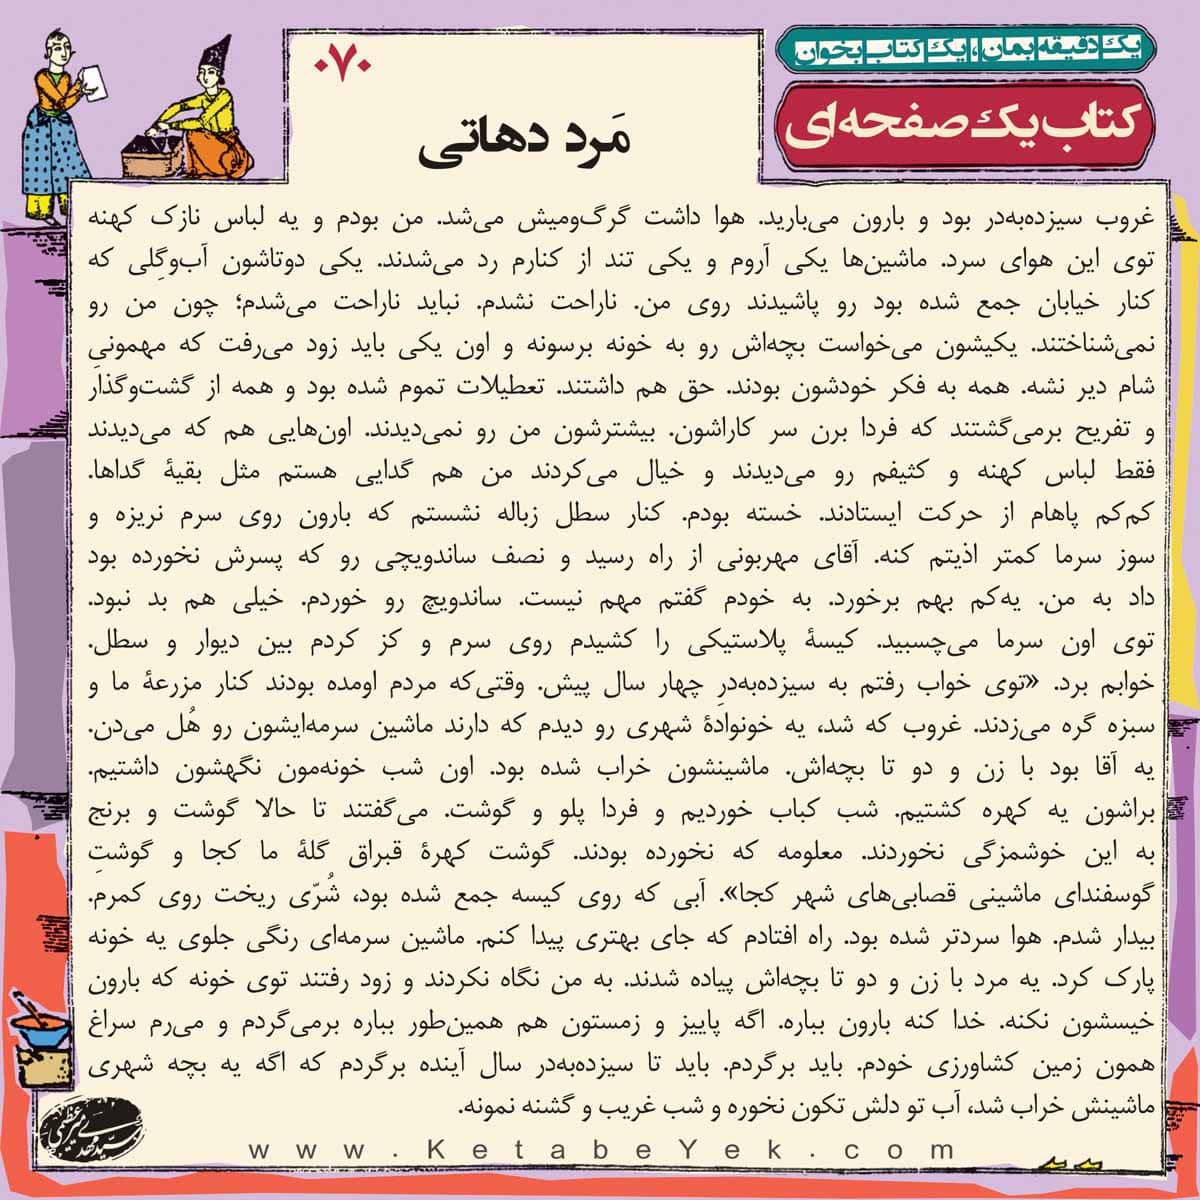 یک دقیقه بمان، یک کتاب بخوان
کتاب یک صفحه‌ای
۰۷۰
مَرد دهاتی
غروب سیزده‌به‌در بود و بارون می‌بارید. هوا داشت گرگ‌ومیش می‌شد. من بودم و یه لباس نازک کهنه
توی این هوای سرد. ماشین‌ها یکی آروم و یکی تند از کنارم رد می‌شدند. یکی دوتاشون آب‌وگِلی که
کنار خیابان جمع شده بود رو پاشیدند روی من. ناراحت نشدم. نباید ناراحت می‌شدم؛ چون من رو
نمی‌شناختند. یکیشون می‌خواست بچه‌اش رو به خونه برسونه و اون یکی باید زود می‌رفت که مهمونیِ
شام دیر نشه. همه به فکر خودشون بودند. حق هم داشتند. تعطیلات تموم شده بود و همه از گشت‌وگذار
و تفریح برمی‌گشتند که فردا برن سر کاراشون. بیشترشون من رو نمی‌دیدند. اون‌هایی هم که می‌دیدند
فقط لباس کهنه و کثیفم رو می‌دیدند و خیال می‌کردند من هم گدایی هستم مثل بقیهٔ گداها.
کم‌کم پاهام از حرکت ایستادند. خسته بودم. کنار سطل زباله نشستم که بارون روی سرم نریزه و
سوز سرما کمتر اذیتم کنه. آقای مهربونی از راه رسید و نصف ساندویچی رو که پسرش نخورده بود
داد به من. یه‌کم بهم برخورد. به خودم گفتم مهم نیست. ساندویچ رو خوردم. خیلی هم بد نبود.
توی اون سرما می‌چسبید. کیسهٔ پلاستیکی را کشیدم روی سرم و کز کردم بین دیوار و سطل.
خوابم برد. «توی خواب رفتم به سیزده‌به‌درِ چهار سال پیش. وقتی‌که مردم اومده بودند کنار مزرعهٔ ما و
سبزه گره می‌زدند. غروب که شد، یه خونوادهٔ شهری رو دیدم که دارند ماشین سرمه‌ایشون رو هُل می‌دن.
یه آقا بود با زن و دو تا بچه‌اش. ماشینشون خراب شده بود. اون شب خونه‌مون نگهشون داشتیم.
براشون یه کهره کشتیم. شب کباب خوردیم و فردا پلو و گوشت. می‌گفتند تا حالا گوشت و برنج
به این خوشمزگی نخوردند. معلومه که نخورده بودند. گوشت کهرهٔ قبراق گلهٔ ما کجا و گوشتِ
گوسفندای ماشینی قصابی‌های شهر کجا». آبی که روی کیسه جمع شده بود، شُرّی ریخت روی کمرم.
بیدار شدم. هوا سردتر شده بود. راه افتادم که جای بهتری پیدا کنم. ماشین سرمه‌ای رنگی جلوی یه خونه
پارک کرد. یه مرد با زن و دو تا بچه‌اش پیاده شدند. به من نگاه نکردند و زود رفتند توی خونه که بارون
خیسشون نکنه. خدا کنه بارون بباره. اگه پاییز و زمستون هم همین‌طور بباره برمی‌گردم و می‌رم سراغ
همون زمین کشاورزی خودم. باید برگردم. باید تا سیزده‌به‌در سال آینده برگردم که اگه یه بچه شهری
ماشینش خراب شد، آب تو دلش تکون نخوره و شب غریب و گشنه نمونه.
www.KetabeYek.com